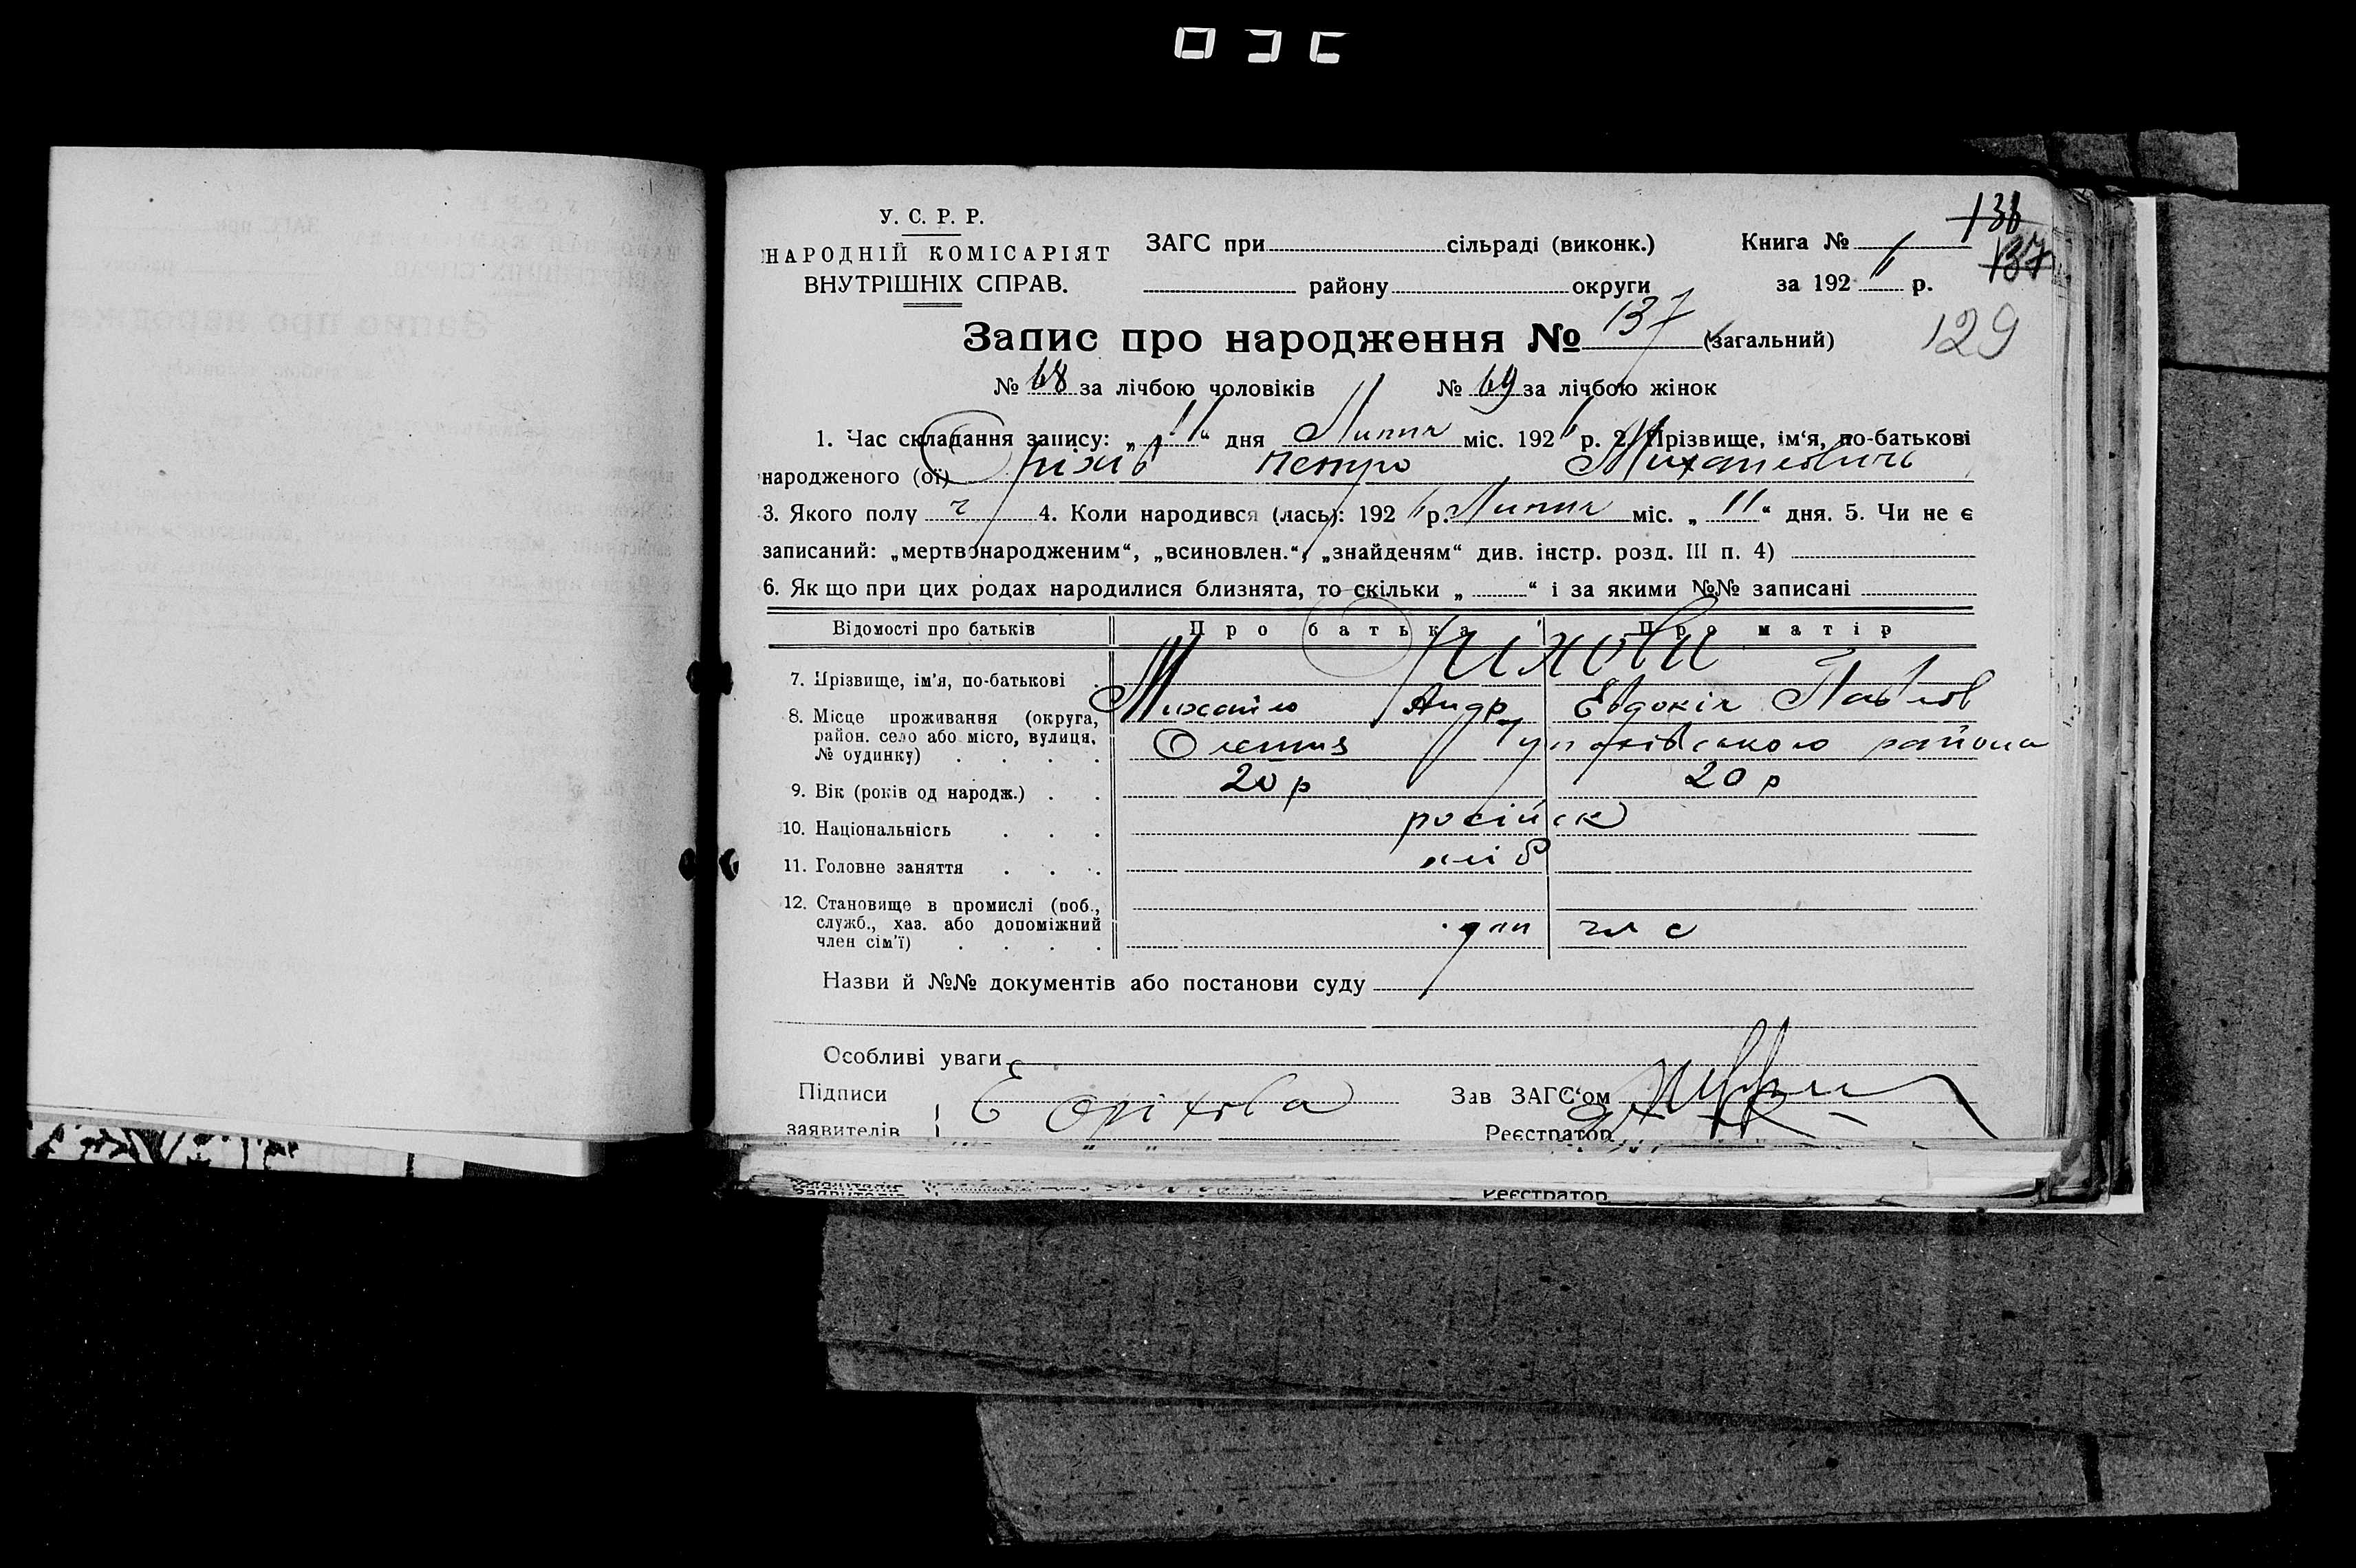 У. С. Р. Р.
НАРОДНІЙ КОМІСАРІЯТ
ВНУТРІШНІХ СПРАВ.
ЗАГС при сільраді (виконк.)
району округи
Книга № 1
за 192 р.
136
137
129
Запис про народження № 137 (загальний)
№ 68 за лічбою чоловіків № 69 за лічбою жінок
1. Час складання запису: „ 11 “ дня Липня міс. 192 р. 2. Прізвище, ім‘я, по-батькові
народженого (ої) Оріхів Петро Михайлович
3. Якого полу ч 4. Коли народився (лась): 192 р. Липня міс. „ 11 “ дня. 5. Чи не є
записаний: „мертвонародженим“, „всиновлен.“, „знайденям“ див. інстр. розд. III п. 4)
6. Як що при цих родах народилися близнята, то скільки „ “ і за якими №№ записані
Відомості про батьків Про батька Про матір
Оріхови
7. Прізвище, ім'я, по-батькові
Михайло Андр Евдокія Павлов
8. Місце проживання (округа,
район. село або місто, вулиця,
№ будинку)
района
9. Вік (років од народж.) 20 р 20 р
10. Національність російск
11. Головне заняття хліб
12. Становище в промислі (роб.,
служб., хаз. або допоміжний
член сім'ї)
доп чл с
Назви й №№ документів або постанови суду
Особливі уваги
Підписи
заявителів
Е Оріхова
Зав ЗАГС‘ом
Реєстратор
Реєстратор